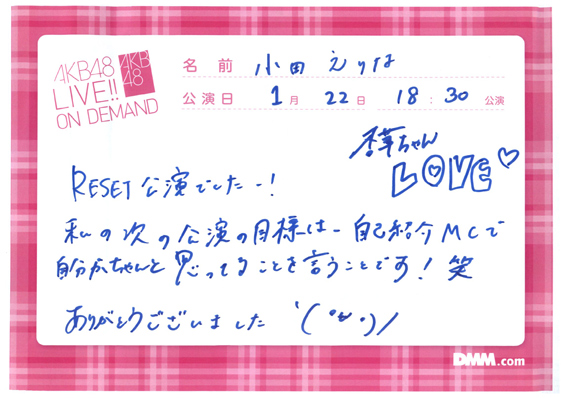 AKB48
LIVE!!
ON DEMAND
AKB
48
名前 小田えりな
公演日 1月 22日 18:30 公演
杏華ちゃん
LOVE♡
RESET公演でしたー!
私の次の公演の目標は、自己紹介MCで
自分がちゃんと思ってることを言うことです!笑
ありがとうございました
DMM.com